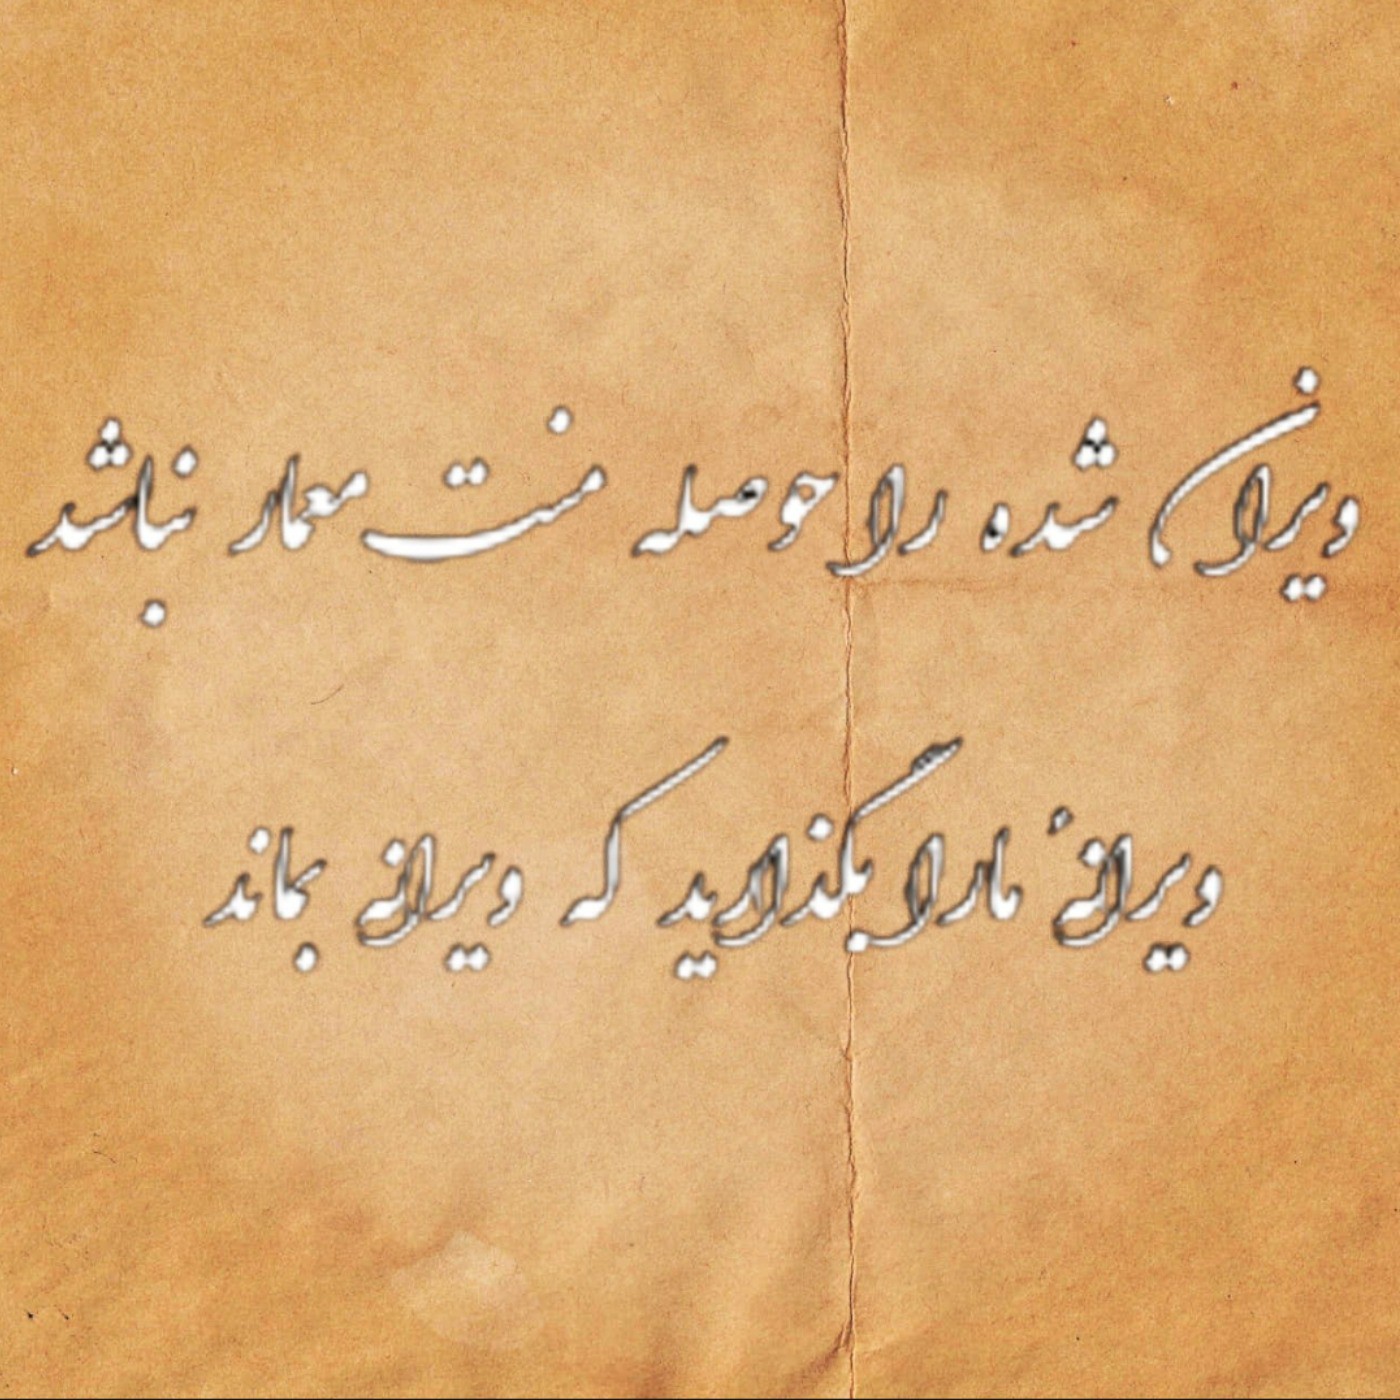 ویران شده را حوصله منت معمار نباشد
ویرانهٔ ما را بگذارید که ویرانه بماند